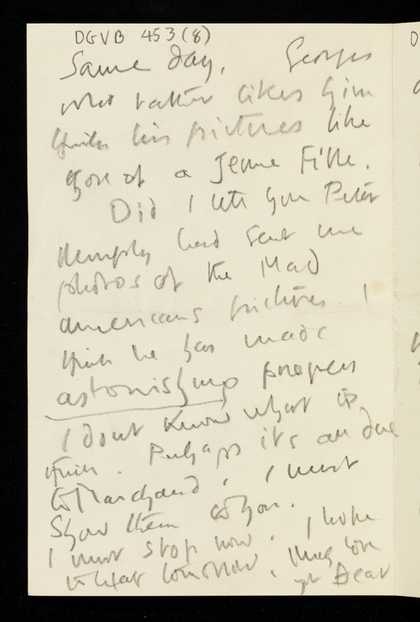 DGVB 453(8)
Same day, Georges
who rather likes him
thinks his pictures like
those of a Jeune Fille.
Did I tell you Peter
Hemphy had sent me
photos of the Mad
americans pictures. I
think he has made
astonishing progress
I dont know what is,
Perhaps its all due
to Marchand, I must
show them to you.
I must stop now, I hope
to hear tomorrow,
yr Bear